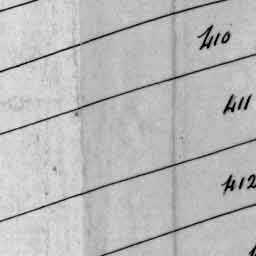 410
411
412